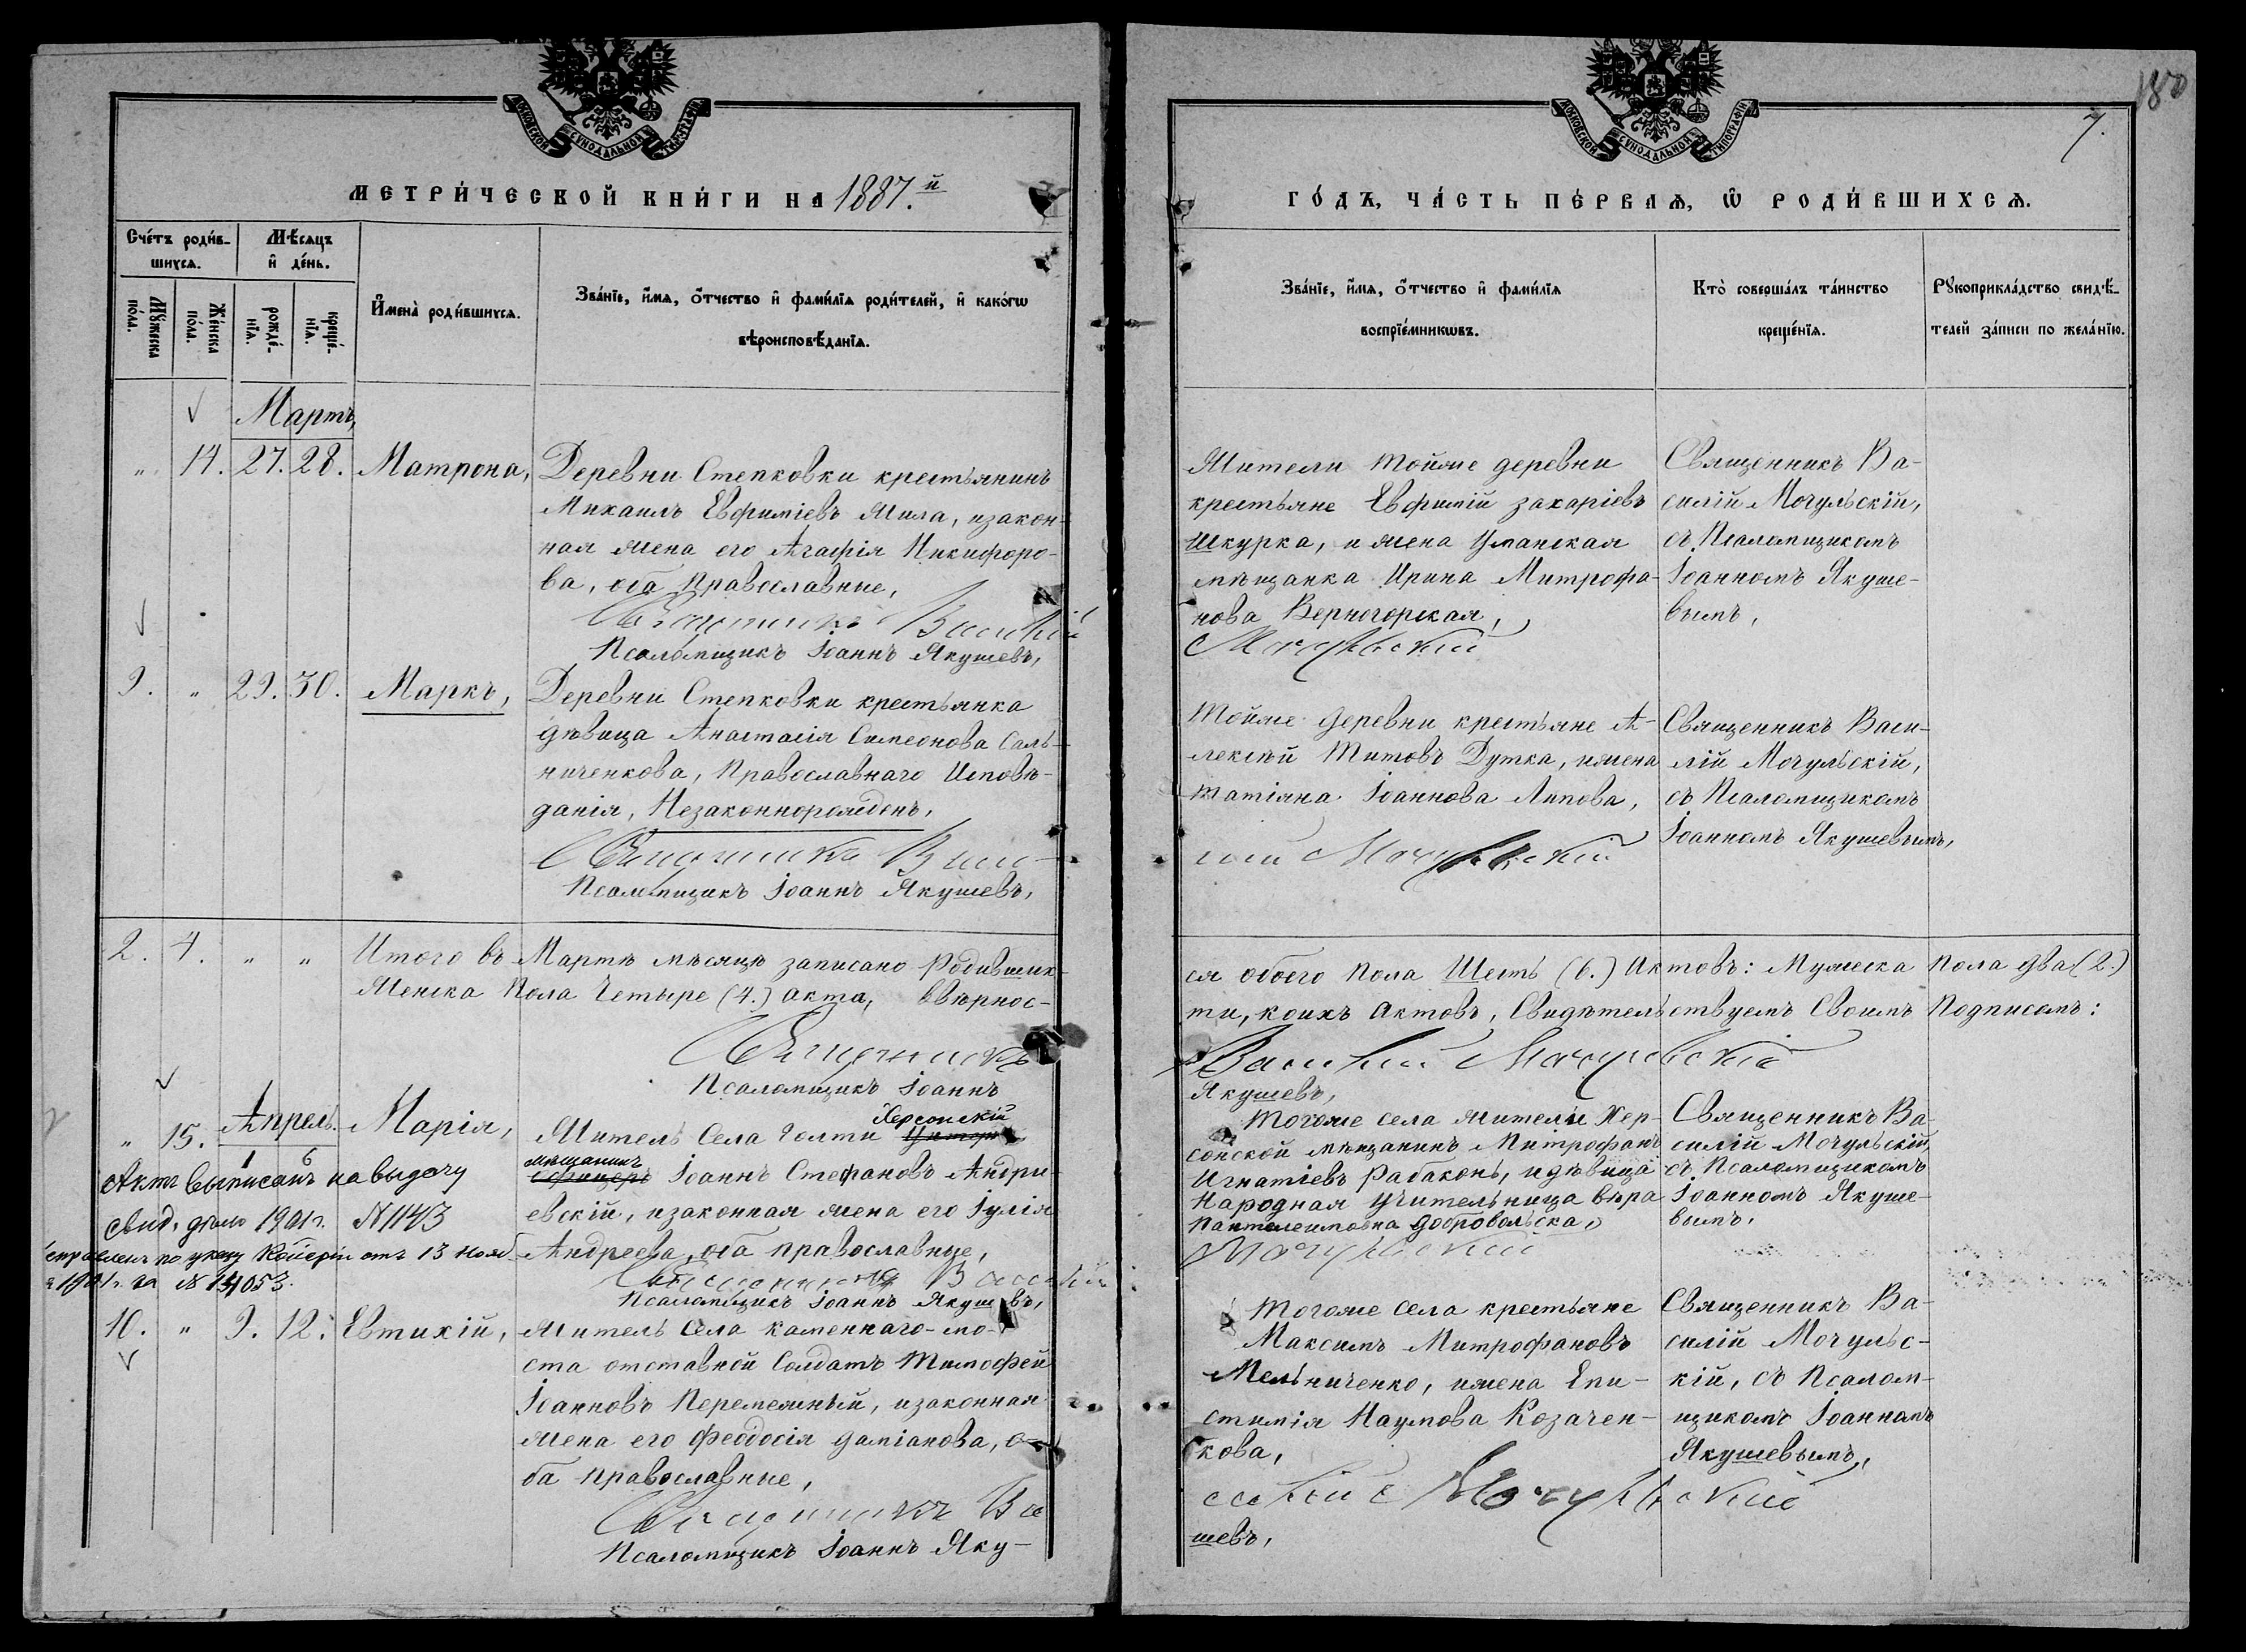 МОСКОВСКОЙ СѴНОДАЛЬНОЙ ТИПОГРАФІИ
МЕТРИ́ЧЕСКОЙ КНИ́ГИ НА 1887.й
Сче́тъ роди́в-
шихся.
Мѣ́сяцъ
и҆ де́нь.
Мꙋ́жеска
по́ла.
Же́нска
по́ла.
рожде́-
нїѧ.
креще́-
нїѧ.
И҆мена̀ роди́вшихсѧ.
Зва́нїе, и҆́мѧ, ѻ҆́тчество и҆ фами́лїѧ роди́телей, и҆ како́гѡ
вѣроисповѣ́данїѧ.
Мартъ,
" 14. 27. 28. Матрона,
Деревни Степковки крестьянинъ
Михаилъ Евфиміевъ Жила, изакон-
ная жена его Агафія Никифоро-
ва, оба Православные,
Священникъ Василій
Псаломщикъ Іоаннъ Якушевъ,
9. " 29. 30. Маркъ,
Деревни Степковки крестьянка
дѣвица Анастасія Симеонова Саль-
ниченкова, Православнаго Исповѣ-
данія, Незаконнорожденъ,
Священникъ Васи-
Псаломщикъ Іоаннъ Якушевъ,
2. 4. " " Итого въ Мартѣ мѣсяцѣ записано Родивших-
Женска Пола Четыре (4.) акта, Ввѣрнос-
Священникъ
Псаломщикъ Іоаннъ
" 15. Апрель. Марія,
1 6
Житель Села Голти Херсонскій
мѣщанинъ Іоаннъ Стефановъ Андри-
евскій, изаконная жена его Іулія
Андреева, оба православные,
Священникъ Василій
Псаломщикъ Іоаннъ Якушевъ,
Актъ выписанъ на выдачу
свид. дѣло 1901г. №1143
справленъ по указу Консіріи отъ 13 Нояб.
1901г. за №14053.
10. " 9. 12. Евтихій,
Житель Села каменнаго-мо-
ста отставной Солдатъ Тимофей
Іоанновъ Перемежный, изаконная
жена его Феодосія даміанова, о-
ба православные,
Священникъ Ва
Псаломщикъ Іоаннъ Яку-
180
7.
МОСКОВСКОЙ СѴНОДАЛЬНОЙ ТИПОГРАФІИ
ГО́ДЪ, ЧА́СТЬ ПЕ́РВАѦ, Ѡ҆ РОДИ́ВШИХСѦ.
Зва́нїе, и҆́мѧ, ѻ҆́тчество и҆ фами́лїѧ
воспрїе́мникѡвъ.
Кто̀ соверша́лъ та́инство
креще́нїѧ.
Рꙋкоприкла́дство свидѣ́-
телей за́писи по жела́нїю.
Жители тойже деревни
крестьяне Евфимій захаріевъ
Шкурка, и жена Уманская
мѣщанка Ирина Митрофа-
нова Верногорская,
Мочульскій
Священникъ Ва-
силій Мочульскій,
съ Псаломщикомъ
Іоанномъ Якуше-
вымъ,
Тойже деревни крестьяне А-
лексѣй Титовъ Дутка, ижена
татіяна Іоаннова Липова,
лій Мочульскій
Священникъ Васи-
лій Мочульскій,
съ Псаломщикомъ
Іоанномъ Якушевымъ,
ся обоего пола Шесть (6.) Актовъ: Мужеска Пола два (2.)
ти, коихъ Актовъ, Свидѣтельствуемъ Своимъ Подписомъ:
Василій Мочульскій
Якушевъ,
Тогоже села жители Хер-
сонской мѣщанинъ Митрофанъ
Игнатіевъ Рабаконь, идѣвица
Народная Учительница вѣра
Пантелеимовна Добровольска,
Мочульскій
Священникъ Ва-
силій Мочульскій,
съ Псаломщикомъ
Іоанномъ Якуше-
вымъ,
Тогоже села крестьяне
Максимъ Митрофановъ
Мельниченко, ижена Епи-
стимія Наумова Козачен-
кова,
силій Мочульскій
шевъ,
Священникъ Ва-
силій Мочульс-
кій, съ Псалом-
щикомъ Іоанномъ
Якушевымъ,